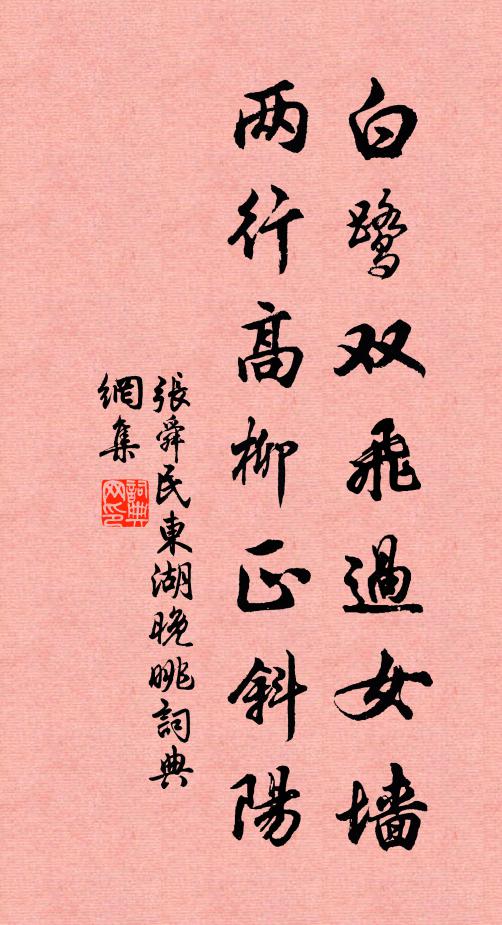 白鹭双飛過女墙
两行高柳正斜陽
張舜民東湖晚眺詞典
網集
詞典網印